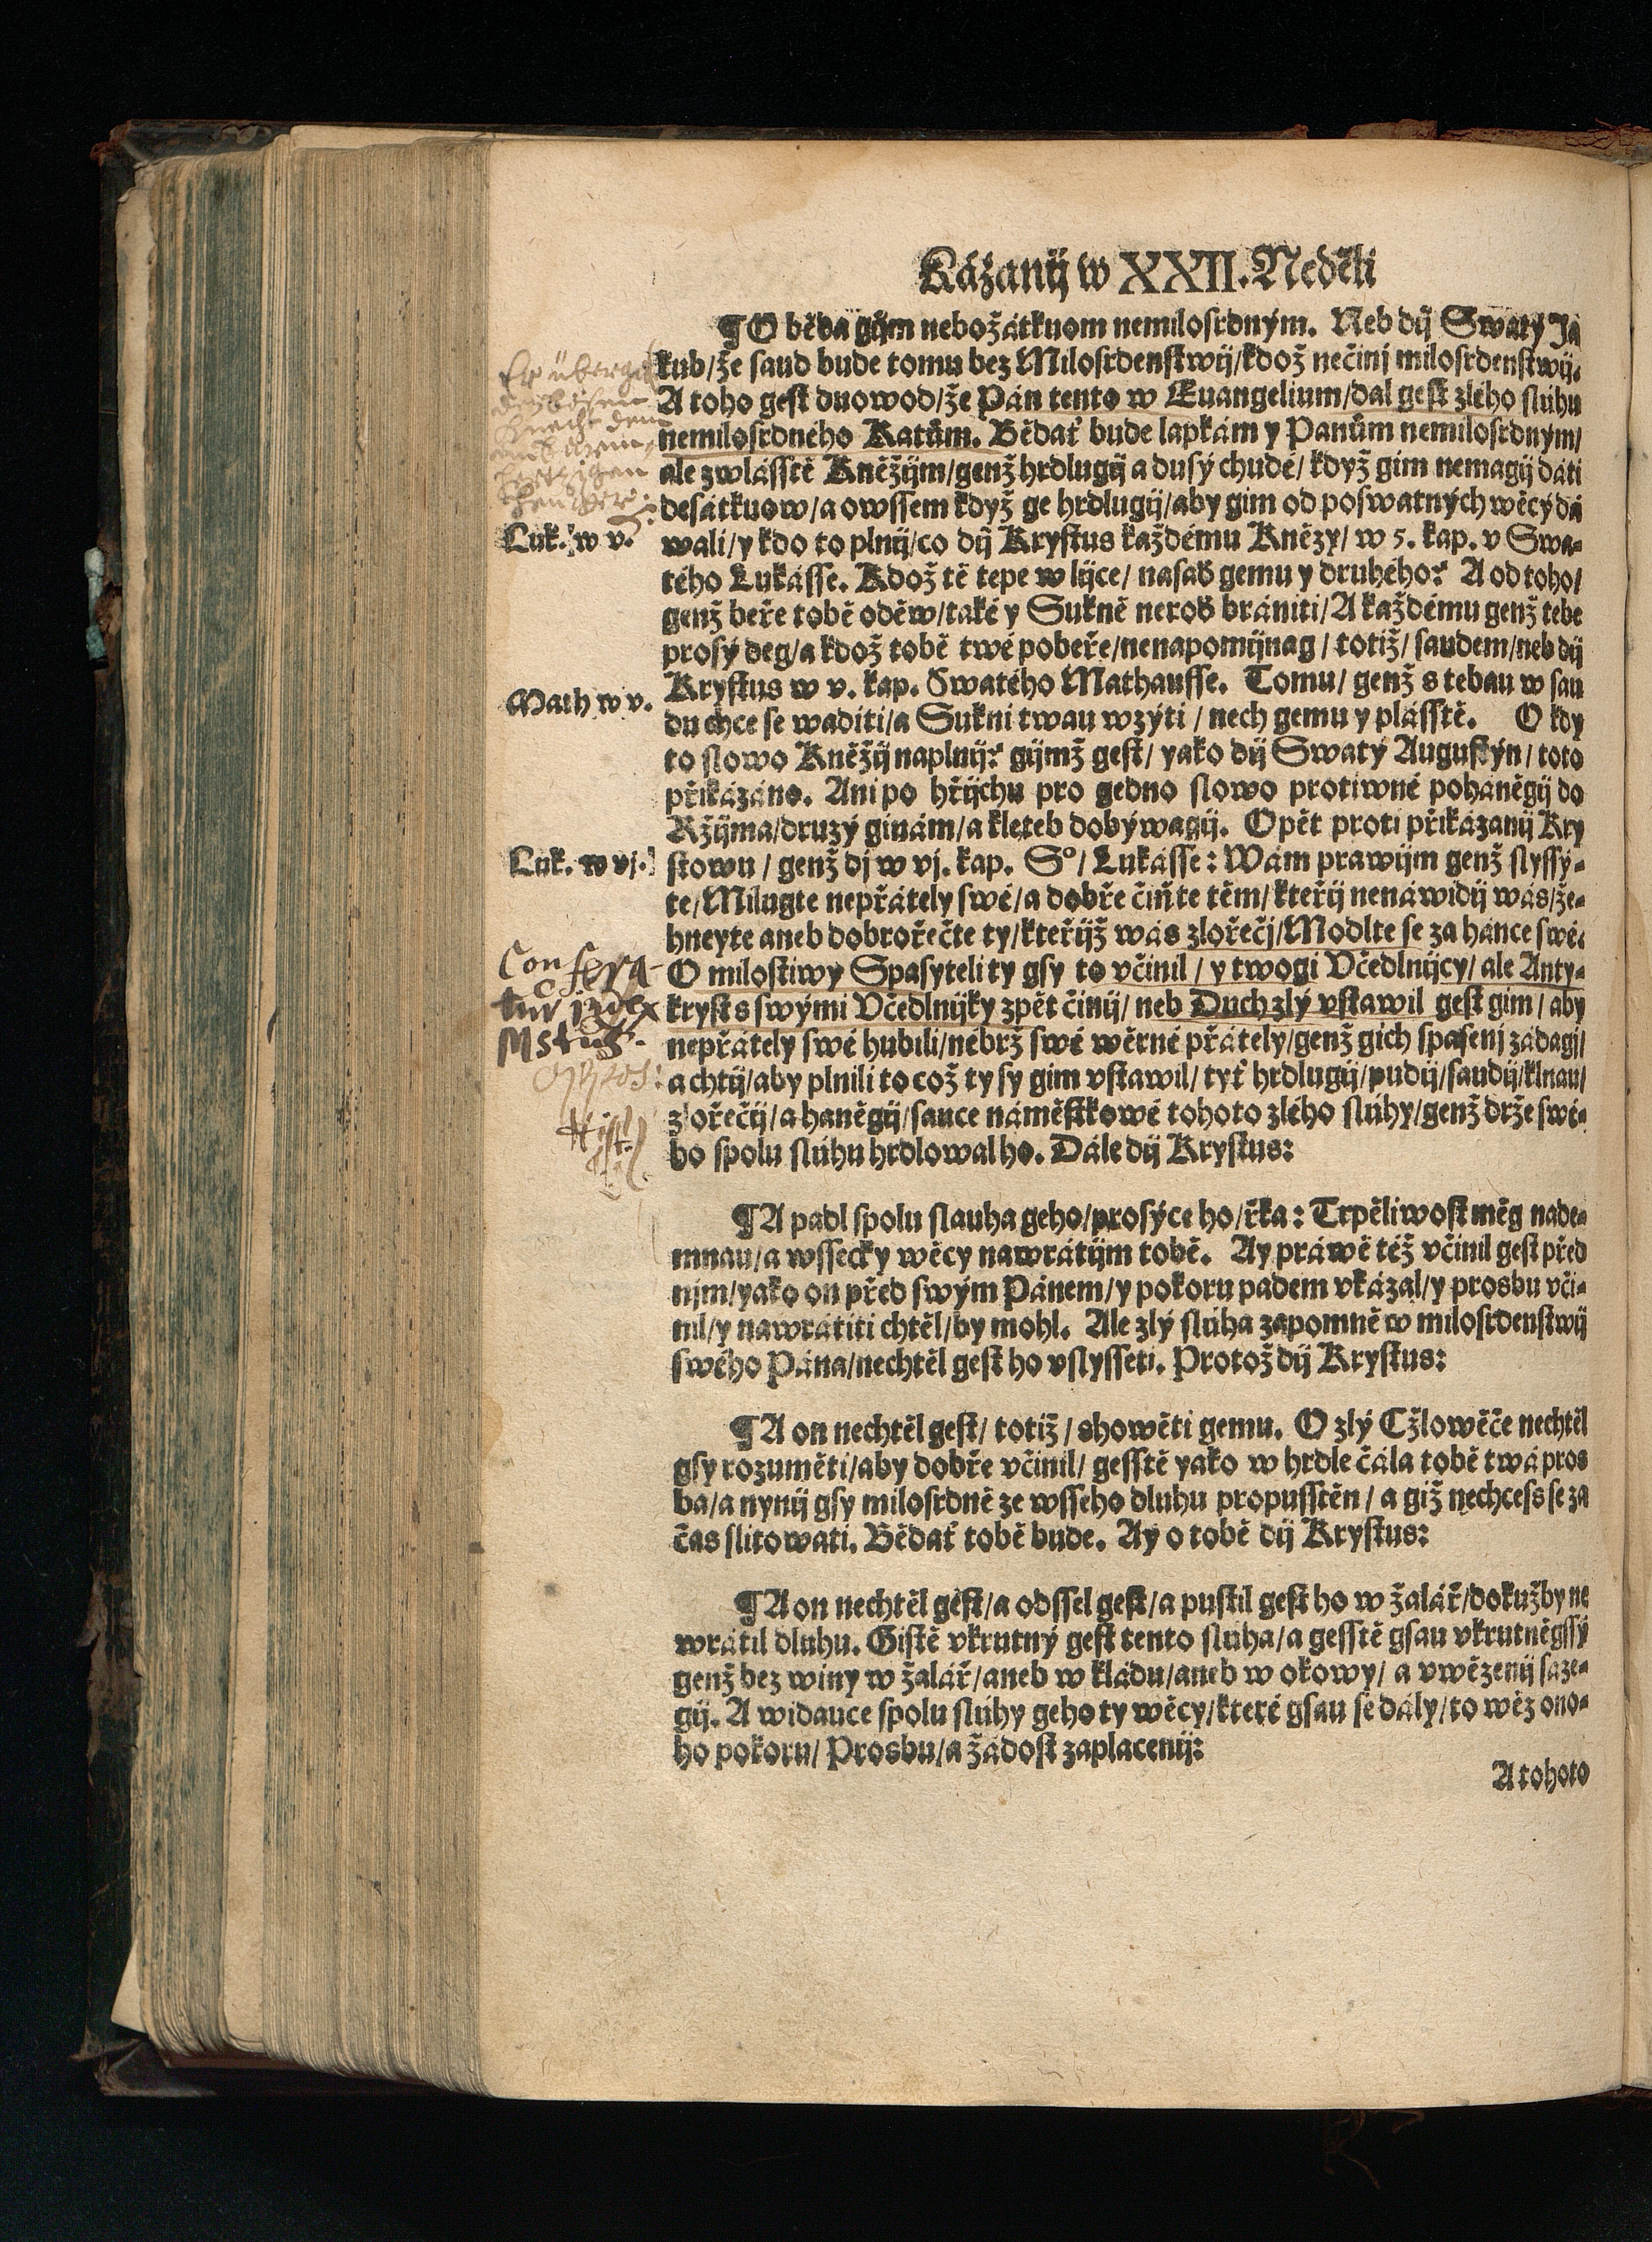 Kázanij w XXII. Neděli
¶ O běda gijm nebožátkuom nemilosrdným. Neb dij Swatý Ja
kub/že saud bude tomu bez Milosrdenstwij/kdož nečinj milosrdenstwij.
A toho gest duowod/že Pán tento w Euangelium/dal gest zlého slúhu
nemilosrdného Katům. Bědať bude lapkám y Panům nemilosrdným/
ale zwlásstě Kněžijm/genž hrdlugij a dusý chudé/ když gim nemagij dáti
desátkuow/a owssem když ge hrdlugij/aby gim od poswatných wěcý dá
Luk. w v.
wali/y kdo to plnij/co dij Krystus každému Knězy/ w 5. kap. v Swa-
tého Lukásse. Kdož tě tepe w lijce/ nasaď gemu y druhého? A od toho/
genž beře tobě oděw/také y Sukně neroď brániti/A každému genž tebe
prosý deg/a kdož tobě twé pobeře/nenapomijnag/ totiž/ saudem/neb dij
Math w v.
Krystus w v. kap. Swatého Mathausse. Tomu/ genž s tebau w sau
du chce se waditi/a Sukni twau wzýti/ nech gemu y plásstě. O kdy
to slowo Kněžij naplnij? gijmž gest/ yako dij Swatý Augustýn/ toto
přikázáno. Ani po hřijchu pro gedno slowo protiwné poháněgij do
Ržijma/druzý ginám/a kleteb dobýwagij. Opět proti přikázanij Kry
Luk. w vj.
stowu/ genž dj w vj. kap. S°/ Lukásse: Wám prawijm genž slyssý-
te/Milugte nepřátely swé/a dobře čiňte těm/kteřij nenáwidij wás/že-
hneyte aneb dobrořečte ty/kteřijž wás zlořečj/Modlte se za hánce swé.
Confera-
O milostiwý Spasyteli ty gsy to včinil/ y twogi Včedlnijcy/ ale Anty-
tur
kryst s swými Včedlnijky zpět činij/ neb Duch zlý vstawil gest gim/ aby
nepřátely swé hubili/nébrž swé wěrné přátely/genž gich spasenj žádagj/
a chtij/aby plnili to což ty sy gim vstawil/ tyť hrdlugij/pudij/saudij/klnau/
zořečij/a haněgij/sauce náměstkowé tohoto zlého slúhy/genž drže swé-
Hist.
ho spolu slúhu hrdlowal ho. Dále dij Krystus:
¶ A padl spolu slauha geho/prosýce ho/řka: Trpěliwost měg nade-
mnau/a wssecky wěcy nawrátijm tobě. Ay práwě též včinil gest před
njm/yako on před swým Pánem/y pokoru padem vkázal/y prosbu vči-
nil/y nawrátiti chtěl/by mohl. Ale zlý slúha zapomně w milosrdenstwij
swého Pána/nechtěl gest ho vslysseti. Protož dij Krystus:
¶ A on nechtěl gest/ totiž/ showěti gemu. O zlý Cžlowěče nechtěl
gsy rozuměti/aby dobře včinil/ gesstě yako w hrdle čála tobě twá pros
ba/a nynij gsy milosrdně ze wsseho dluhu propusstěn/ a giž nechcess se za
čas slitowati. Bědať tobě bude. Ay o tobě dij Krystus:
¶ A on nechtěl gest/a odssel gest/a pustil gest ho w žalář/dokužby ne
wrátil dluhu. Gistě vkrutný gest tento slúha/a gesstě gsau vkrutněgssý
genž bez winy w žalář/aneb w kládu/aneb w okowy/ a vwězenij sáze-
gij. A widauce spolu slúhy geho ty wěcy/které gsau se dály/to wěz ono-
ho pokoru/ Prosbu/a žádost zaplacenij:
A tohoto